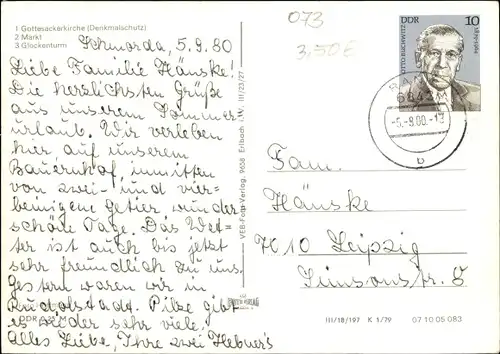 1 Gottesackerkirche (Denkmalschutz)
2 Markt
3 Glockenturm
Schmorda, 5.9.80
Liebe Familie Hänske!
Die herzlichsten Grüße
aus unserem Sommer-
urlaub. Wir verleben
hier auf unserem
Bauernhof, inmitten
von zwei- und vier-
beinigem Getier, wunder-
schöne Tage. Das Wet-
ter ist auch bis jetzt
sehr freundlich zu uns.
Gestern waren wir in
Rudolstadt. Pilze gibt
es wieder sehr viele.
Alles Liebe, Ihre zwei Hebner's
VEB Foto-Verlag, 9658 Erlbach i. V. III/23/27
073
3,50 €
DDR 10
OTTO BUCHWITZ
1879-1964
-5.-9.80.-17
b
Fam.
Hänske
7010 Leipzig
Simsonstr. 8
III/18/197 K 1/79 07 10 05 083